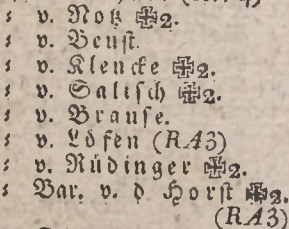 : v. Notz ✠2.
: v. Beust.
: v. Klencke ✠2.
: v. Salisch ✠2.
: v. Brause.
: v. Lösen (RA3)
: v. Rüdinger ✠2.
: Bar. v. d Horst ✠2.
(RA3)